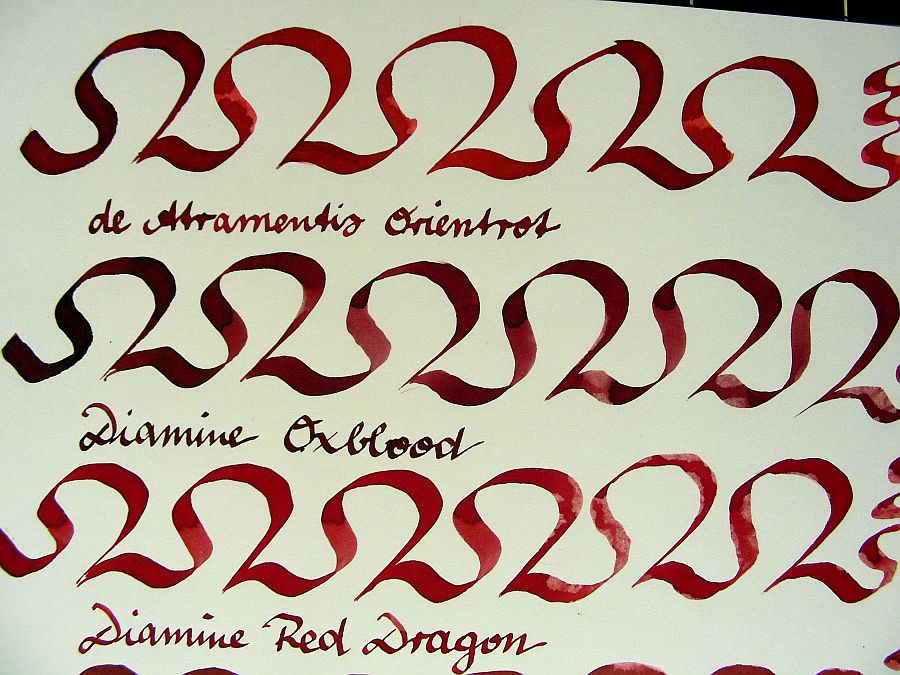 de Atramentis Orientrot
Diamine Oxblood
Diamine Red Dragon